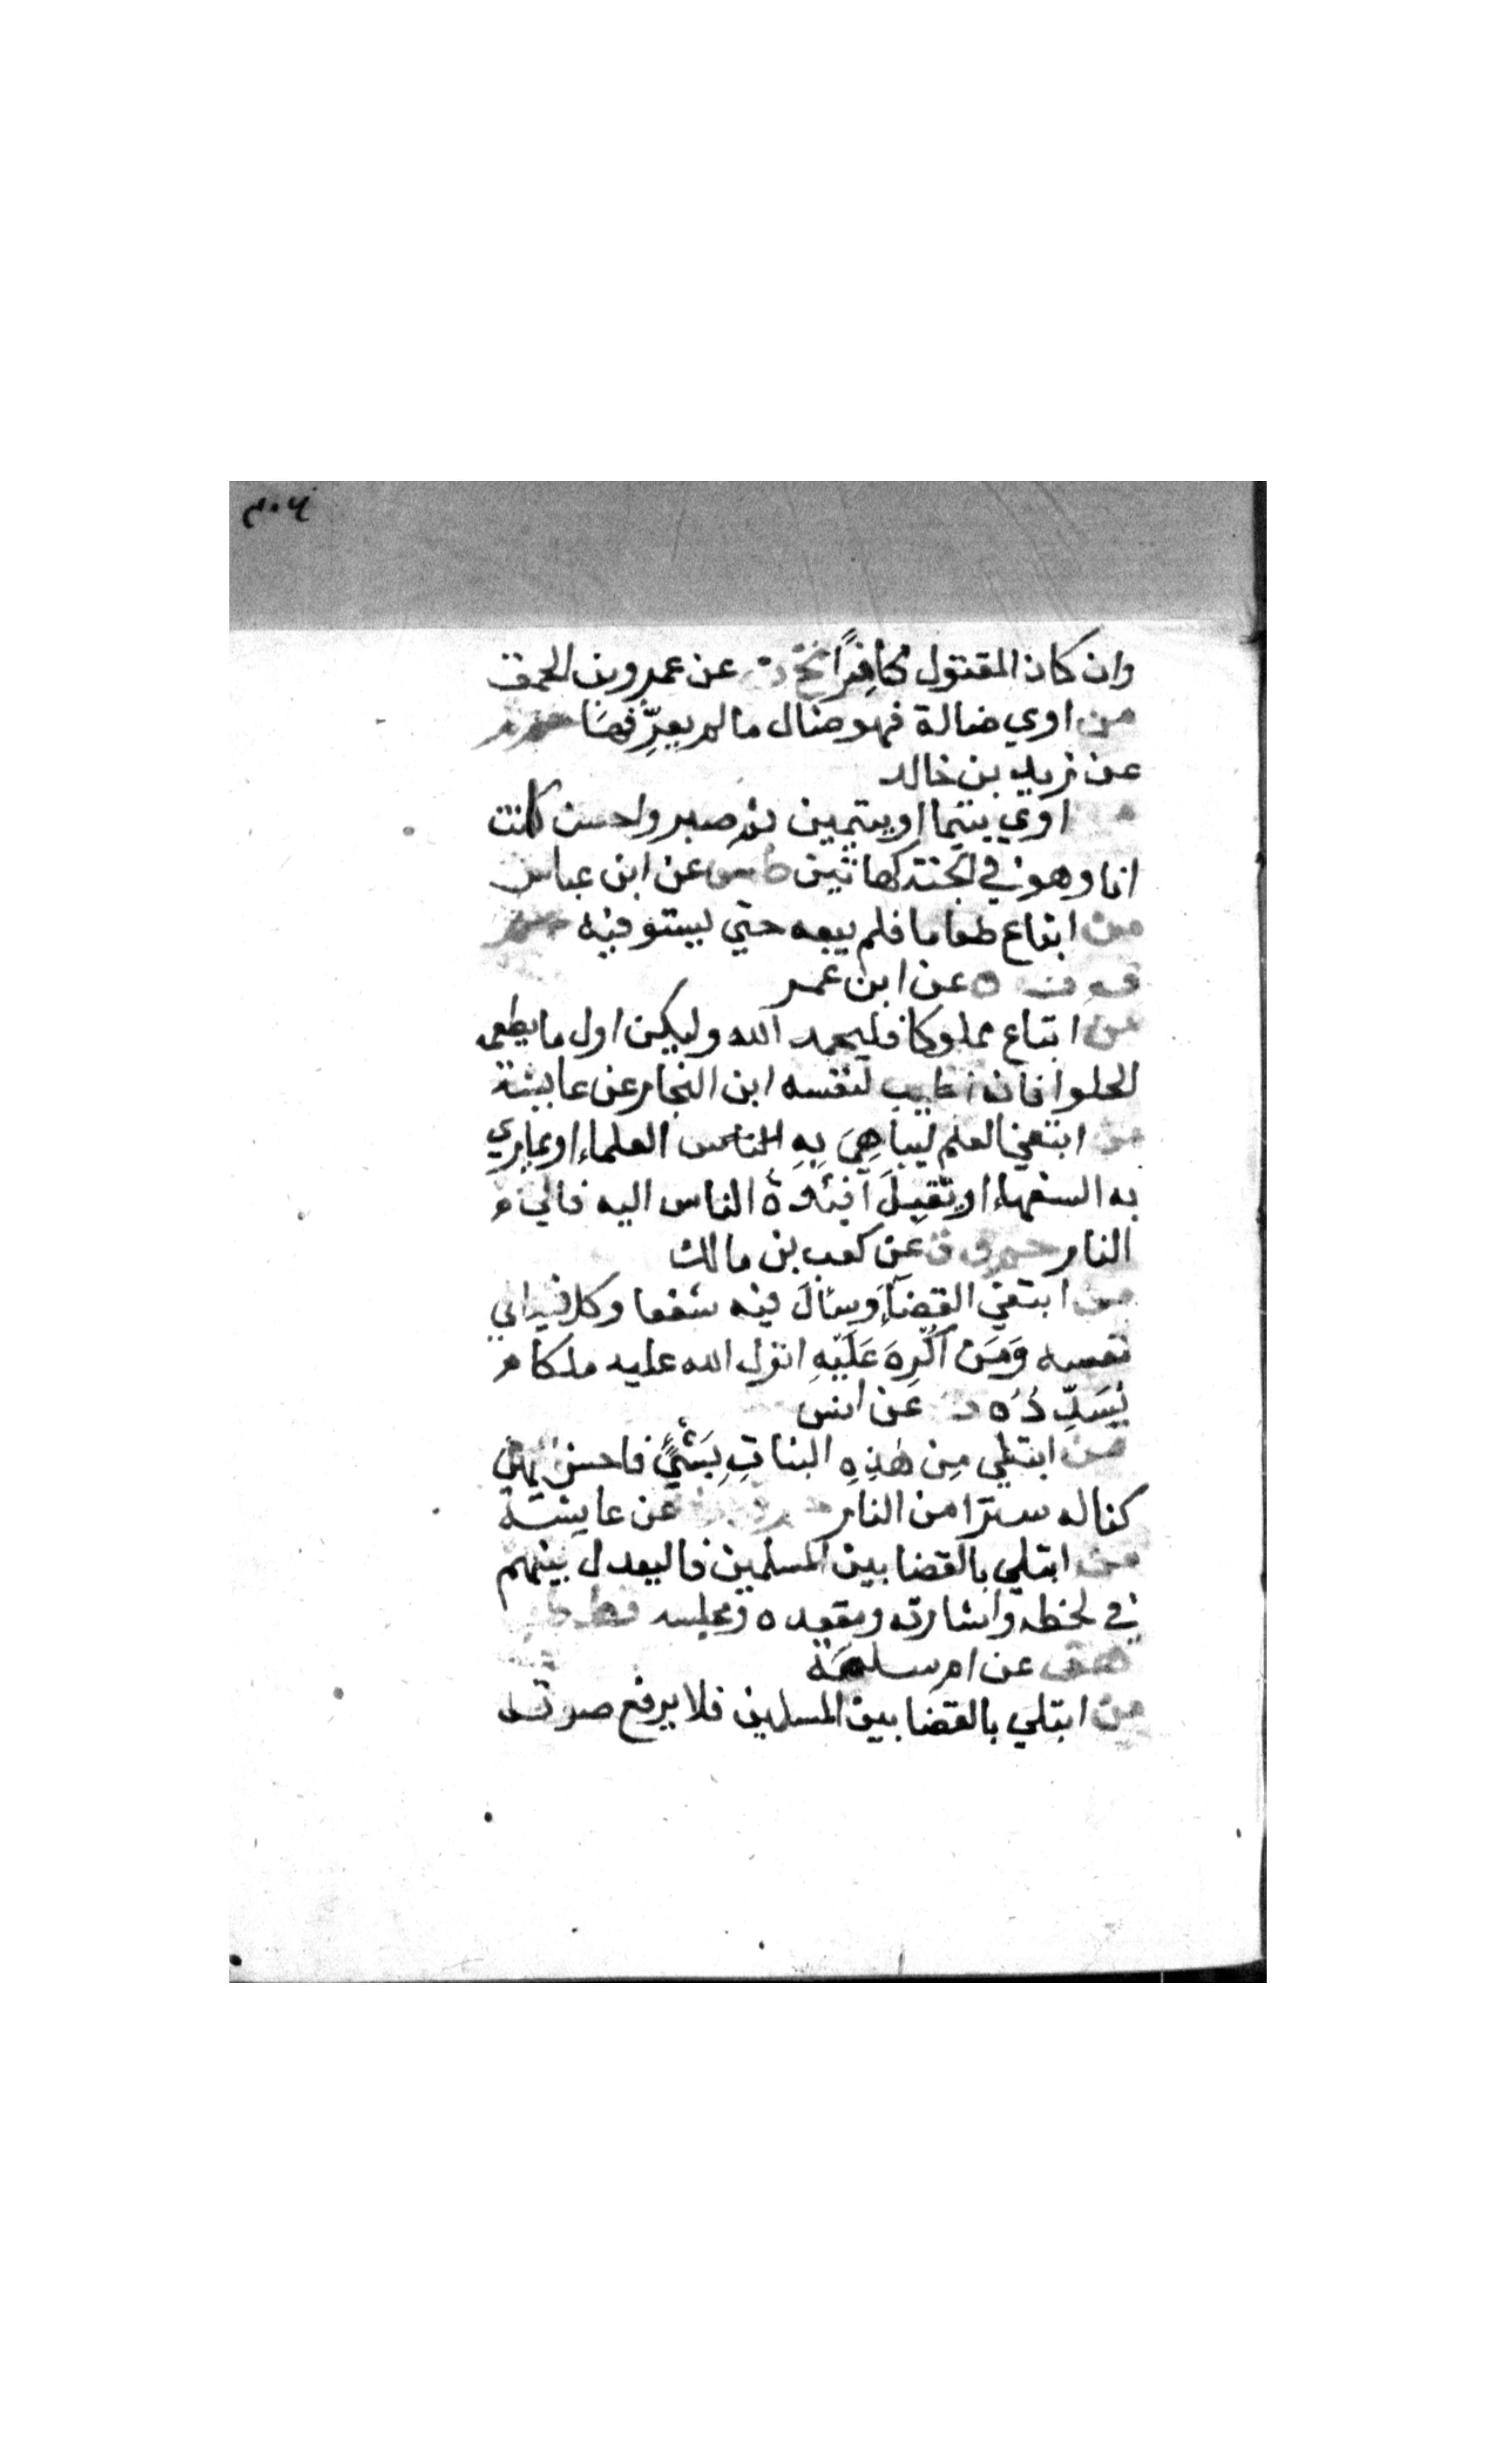 ٢٠٤
وان كان المقتول كافِرًا تخ ن عن عمرو بن الحمق
من اوي ضالة فهو ضال مالم يعرِّفهَا حم م
عن زيد بن خالد
اوي يتيما او يتيمين ثم صبر واحسن كنت
انا وهو في الجنة كهاتين طس عن ابن عباس
من ابتاع طعاما فلم يبعه حتي يستوفيه حم
ق ن ه عن ابن عمر
من ابتاع مملوكا فليحمد الله وليكن اول ما يطعمه
الحلوا فانه اطيب لنفسه ابن النجار عن عايشة
من ابتغي العلم ليباهِيَ بِهِ العلماء او يماري
به السفهاء او تقبلَ افئدةُ الناس اليه فالي
النار عن كعب بن مالك
من ابتغي القضآء وسأل فيه شفعا وكل الي
نفسه وَمَن اُكرِهَ عَلَيْهِ انزل الله عليه ملكا
يُسَدِّدُه عن انس
من ابتلي مِن هٰذِهِ البناتِ بِشَيْءٍ فاحسن اليهن
كن له سترا من النار حم عن عايشة
من ابتلي بالقضا بين المسلمين فاليعدل بينهم
في لحظه واشارته ومقعده ومجلسه قط طب
هق عن ام سلمة
من ابتلي بالقضا بين المسلمين فلا يرفع صوته